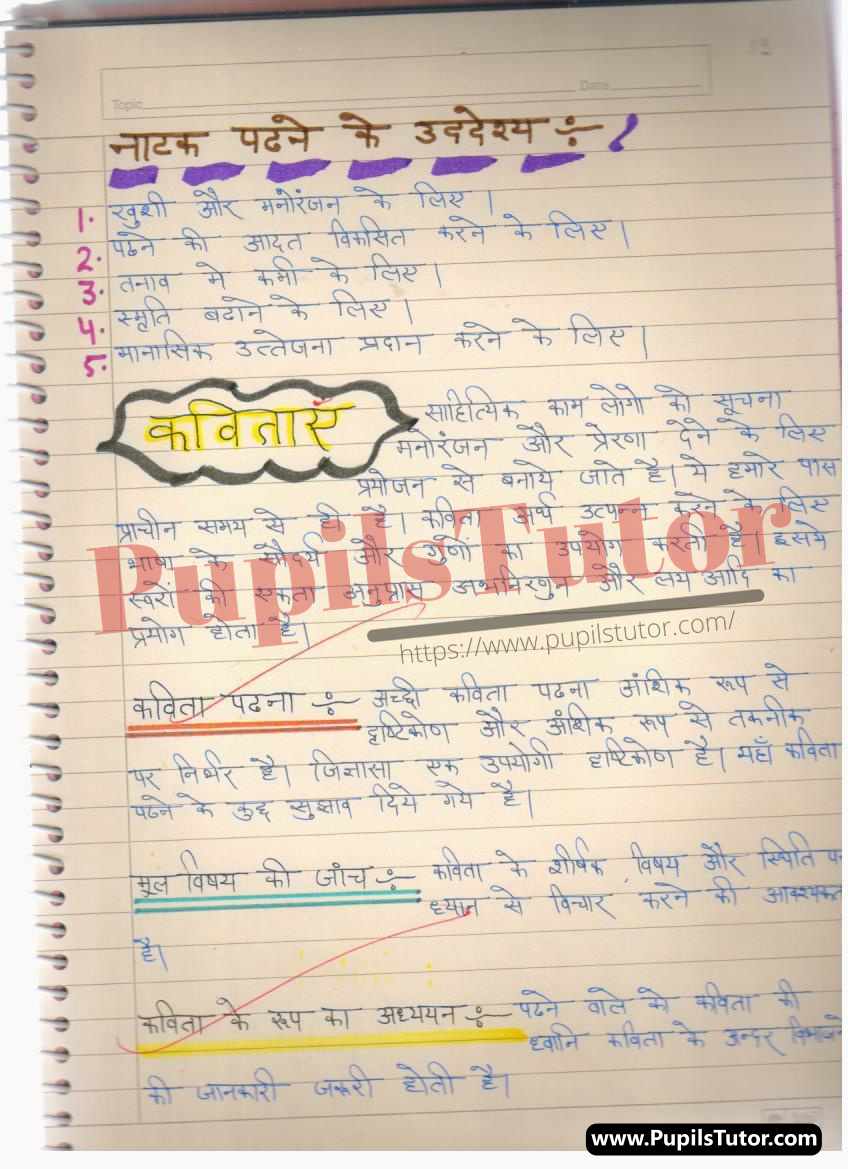 13
Topic
Date
नाटक पढने के उददेश्य ÷
1. खुशी और मनोरंजन के लिए।
2. पढने की आदत विकसित करने के लिए।
3. तनाव मे कमी के लिए।
4. स्मृति बढाने के लिए।
5. मानासिक उत्तेजना प्रदान करने के लिए।
कविताएँ
साहित्यिक काम लोगो को सूचना
मनोरंजन और प्रेरणा देने के लिए
प्रयोजन से बनाये जाते है। ये हमारे पास
प्राचीन समय से ही है। कविता अर्थ उत्पन्न करने के लिए
भाषा के सौदर्य और गुणों का उपयोग करती है। इसमे
स्वरों की एकता अनुप्रास और लय आदि का
प्रयोग होता है।
PupilsTutor
https://www.pupilstutor.com/
कविता पढना ÷ अच्छी कविता पढना आंशिक रूप से
दृष्टिकोण और आंशिक रूप से तकनीक
पर निर्भर है। जिज्ञासा एक उपयोगी दृष्टिकोण है। यहाँ कविता
पढने के कुछ सुझाव दिये गये है।
मूल विषय की जांच ÷ कविता के शीर्षक, विषय और स्थिति
ध्यान से विचार करने की आवश्यकत
है।
कविता के रूप का अध्ययन ÷ पढने वाले को कविता की
ध्वानि कविता के अन्दर
की जानकारी जरूरी होती है।
www.PupilsTutor.com